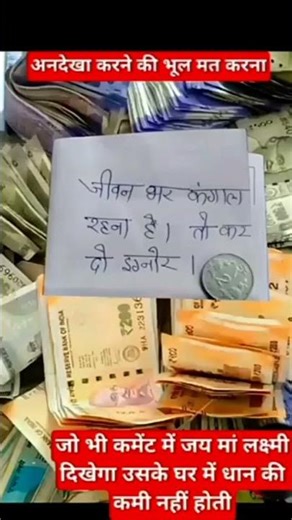 अनदेखा करने की भूल मत करना
जीवन भर कंगाल
रहना है। तो कर
दो इग्नोर।
RESERVE BANK OF INDIA
₹200
जो भी कमेंट में जय मां लक्ष्मी
दिखेगा उसके घर में धान की
कमी नहीं होती